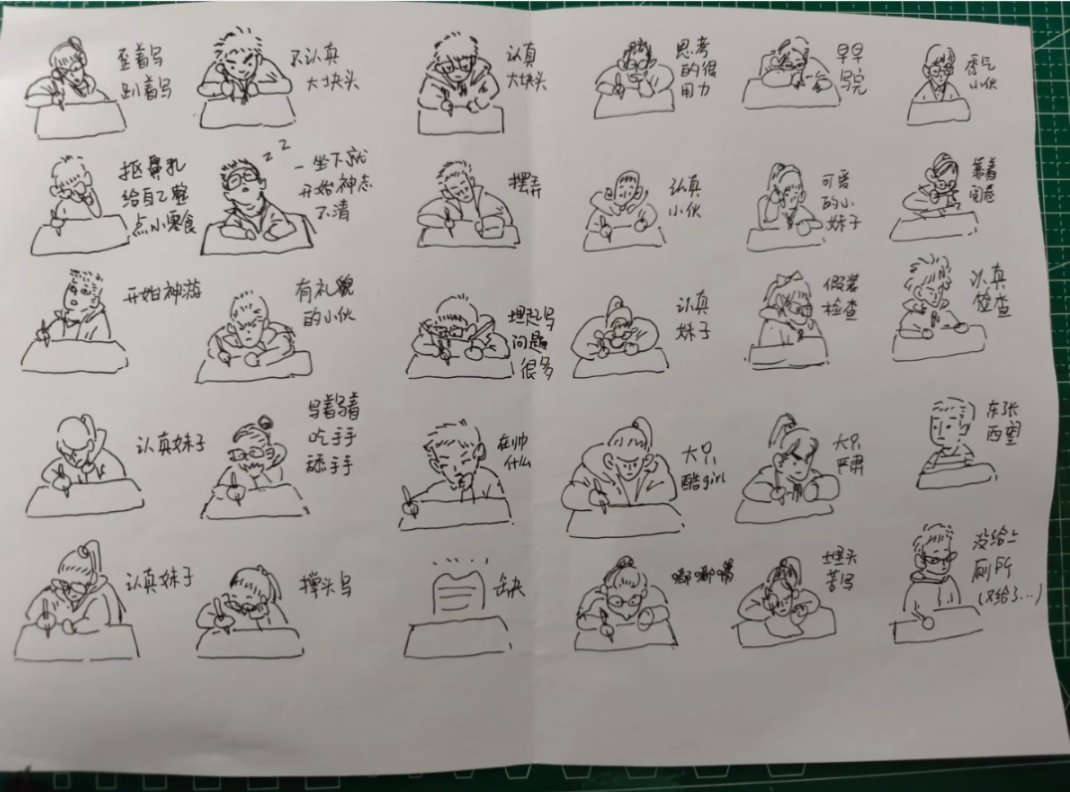 歪着写
趴着写
不认真
大块头
认真
大块头
思考
的很
用力
早早
写完
秀气
小伙
抠鼻孔
给自己整
点小零食
zz
一坐下就
开始神志
不清
摆弄
认真
小伙
可爱
的小
妹子
靠着
开始神游
有礼貌
的小伙
埋起写
问题
很多
认真
妹子
假装
检查
认真
检查
认真妹子
写着写着
吃手手
舔手手
在帅
什么
大只
酷girl
大只
严肃
东张
西望
认真妹子
掸头写
缺
嘟嘟嘴
埋头
苦写
没给上
厕所
(又给了...)